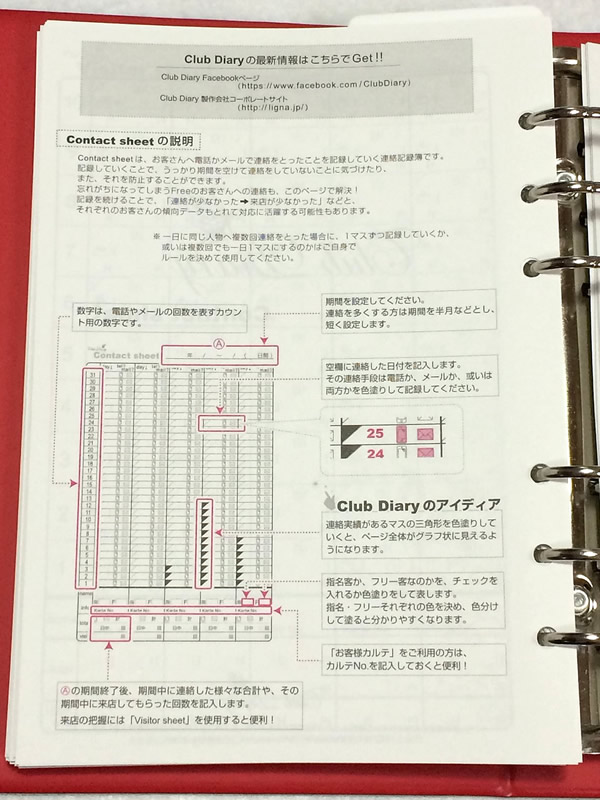 Club Diaryの最新情報はこちらでGet!!
Club Diary Facebookページ
(https://www.facebook.com/ClubDiary)
Club Diary 製作会社コーポレートサイト
(http://ligna.jp/)
Contact sheet の説明
Contact sheetは、お客さんへ電話かメールで連絡をとったことを記録していく連絡記録簿です。
記録していくことで、うっかり期間を空けて連絡をしていないことに気づけたり、
また、それを防止することができます。
忘れがちになってしまうFreeのお客さんへの連絡も、このページで解決！
記録を続けることで、「連絡が少なかった➡来店が少なかった」などと、
それぞれのお客さんの傾向データもとれて対応に活躍する可能性もあります。
※ 一日に同じ人物へ複数回連絡をとった場合に、1マスずつ記録していくか、
或いは複数回でも一日1マスにするのかはご自身で
ルールを決めて使用してください。
数字は、電話やメールの回数を表すカウント
用の数字です。
期間を設定してください。
連絡を多くする方は期間を半月などとし、
短く設定します。
Ⓐ
Contact sheet
年 / ― / ( 日間 )
空欄に連絡した日付を記入します。
その連絡手段は電話か、メールか、或いは
両方かを色塗りして記録してください。
31
30
29
28
27
26
25
24
23
22
21
20
19
18
17
16
15
14
13
12
11
10
9
8
7
6
5
4
3
2
1
25
24
Club Diary のアイディア
連絡実績があるマスの三角形を色塗りして
いくと、ページ全体がグラフ状に見えるよ
うになります。
指名客か、フリー客なのかを、チェックを
入れるか色塗りをして表します。
指名・フリーそれぞれの色を決め、色分け
して塗ると分かりやすくなります。
name
Karte No. Karte No. Karte No. Karte No. Karte No. Karte No.
「お客様カルテ」をご利用の方は、
カルテNo.を記入しておくと便利！
Ⓐの期間終了後、期間中に連絡した様々な合計や、その
期間中に来店してもらった回数を記入します。
来店の把握には「Visitor sheet」を使用すると便利！